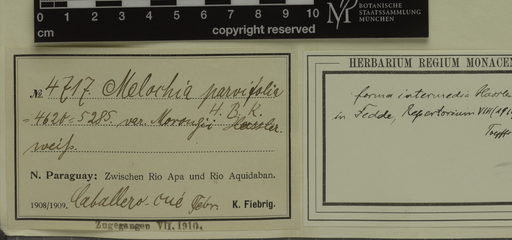 0 1 2 3 4 5 6 7 8 9 10
cm
copyright reserved
BOTANISCHE
STAATSSAMMLUNG
MÜNCHEN
HERBARIUM REGIUM MONACEN
№ 4717. Melochia parvifolia
H. B. K.
= 4620 = 5285 var. Morongii Hassler.
weiß.
N. Paraguay: Zwischen Rio Apa und Rio Aquidaban.
1908/1909. Caballero-cué Febr. K. Fiebrig.
Zugegangen VII. 1910.
forma intermedia Hassler
in Fedde, Repertorium VIII (191